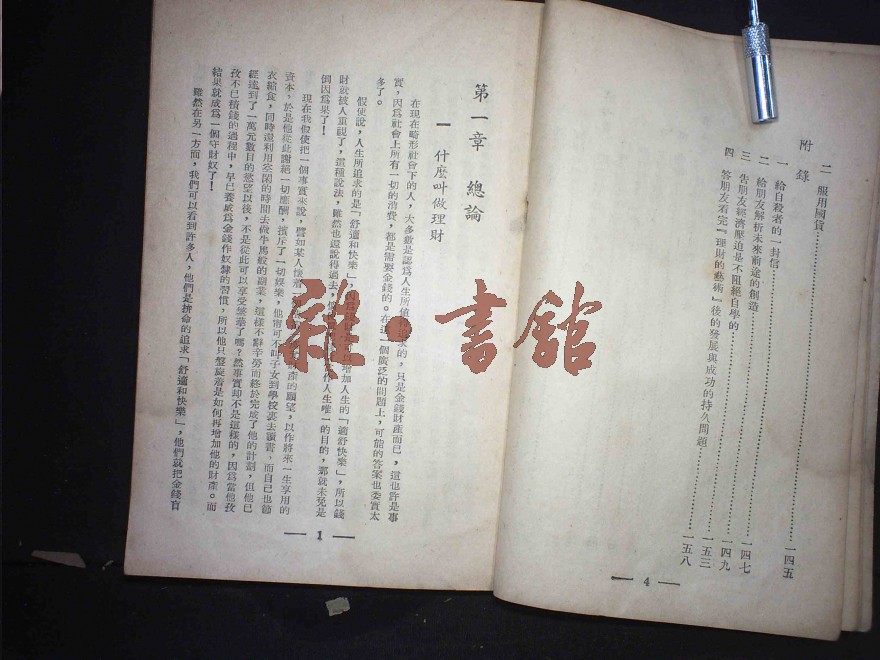 二 服用國貨……一四五
附錄
一 給自殺者的一封信……一四七
二 給朋友解析未來前途的創造……一四九
三 告朋友經濟壓迫是不阻絕自學的……一五三
四 答朋友看完『理財的藝術』後的發展與成功的持久問題……一五八
— 4 —
第一章 總論
一 什麼叫做理財
在現在畸形社會下的人,大多數是認爲人生所值得追求的,只是金錢財產而已,這也許是事
實,因爲社會上所有一切的消費,都是需要金錢的。在這一個廣泛的問題上,可能的答案也委實太
多了。
假使說,人生所追求的是「舒適和快樂」,可以增加人生的「適舒快樂」,所以錢
財就被人重視了,這種說法,雖然也還說得過去,人生唯一的目的,那就未免是
倒因爲果了!
現在我假使把一個事實來說,譬如某人懷着財產的願望,以作將來一生享用的
資本,於是他從此謝絕一切應酬,擯斥了一切娛樂,他甯可不叫子女到學校裏去讀書,而自己也節
衣縮食,同時還利用空閑的時間去做牛馬般的副業,這樣不辭辛勞而終於完成了他的計劃,但他已
經達到了一萬元數目的慾望以後,不是從此可以享受繁華了嗎?然事實却不是這樣的,因爲當他孜
孜不已積錢的過程中,早已養成爲金錢作奴隸的習慣,所以他只盤旋着是如何再增加他的財產。而
結果就成爲一個守財奴了!
雖然在另一方面,我們可以看到許多人,他們是拚命的追求「舒適和快樂」,他們就把金錢盲
— 1 —
雜·書館